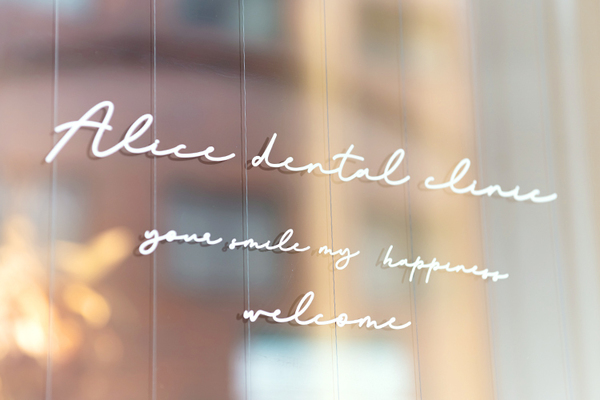 Alice dental clinic
your smile my happiness
welcome